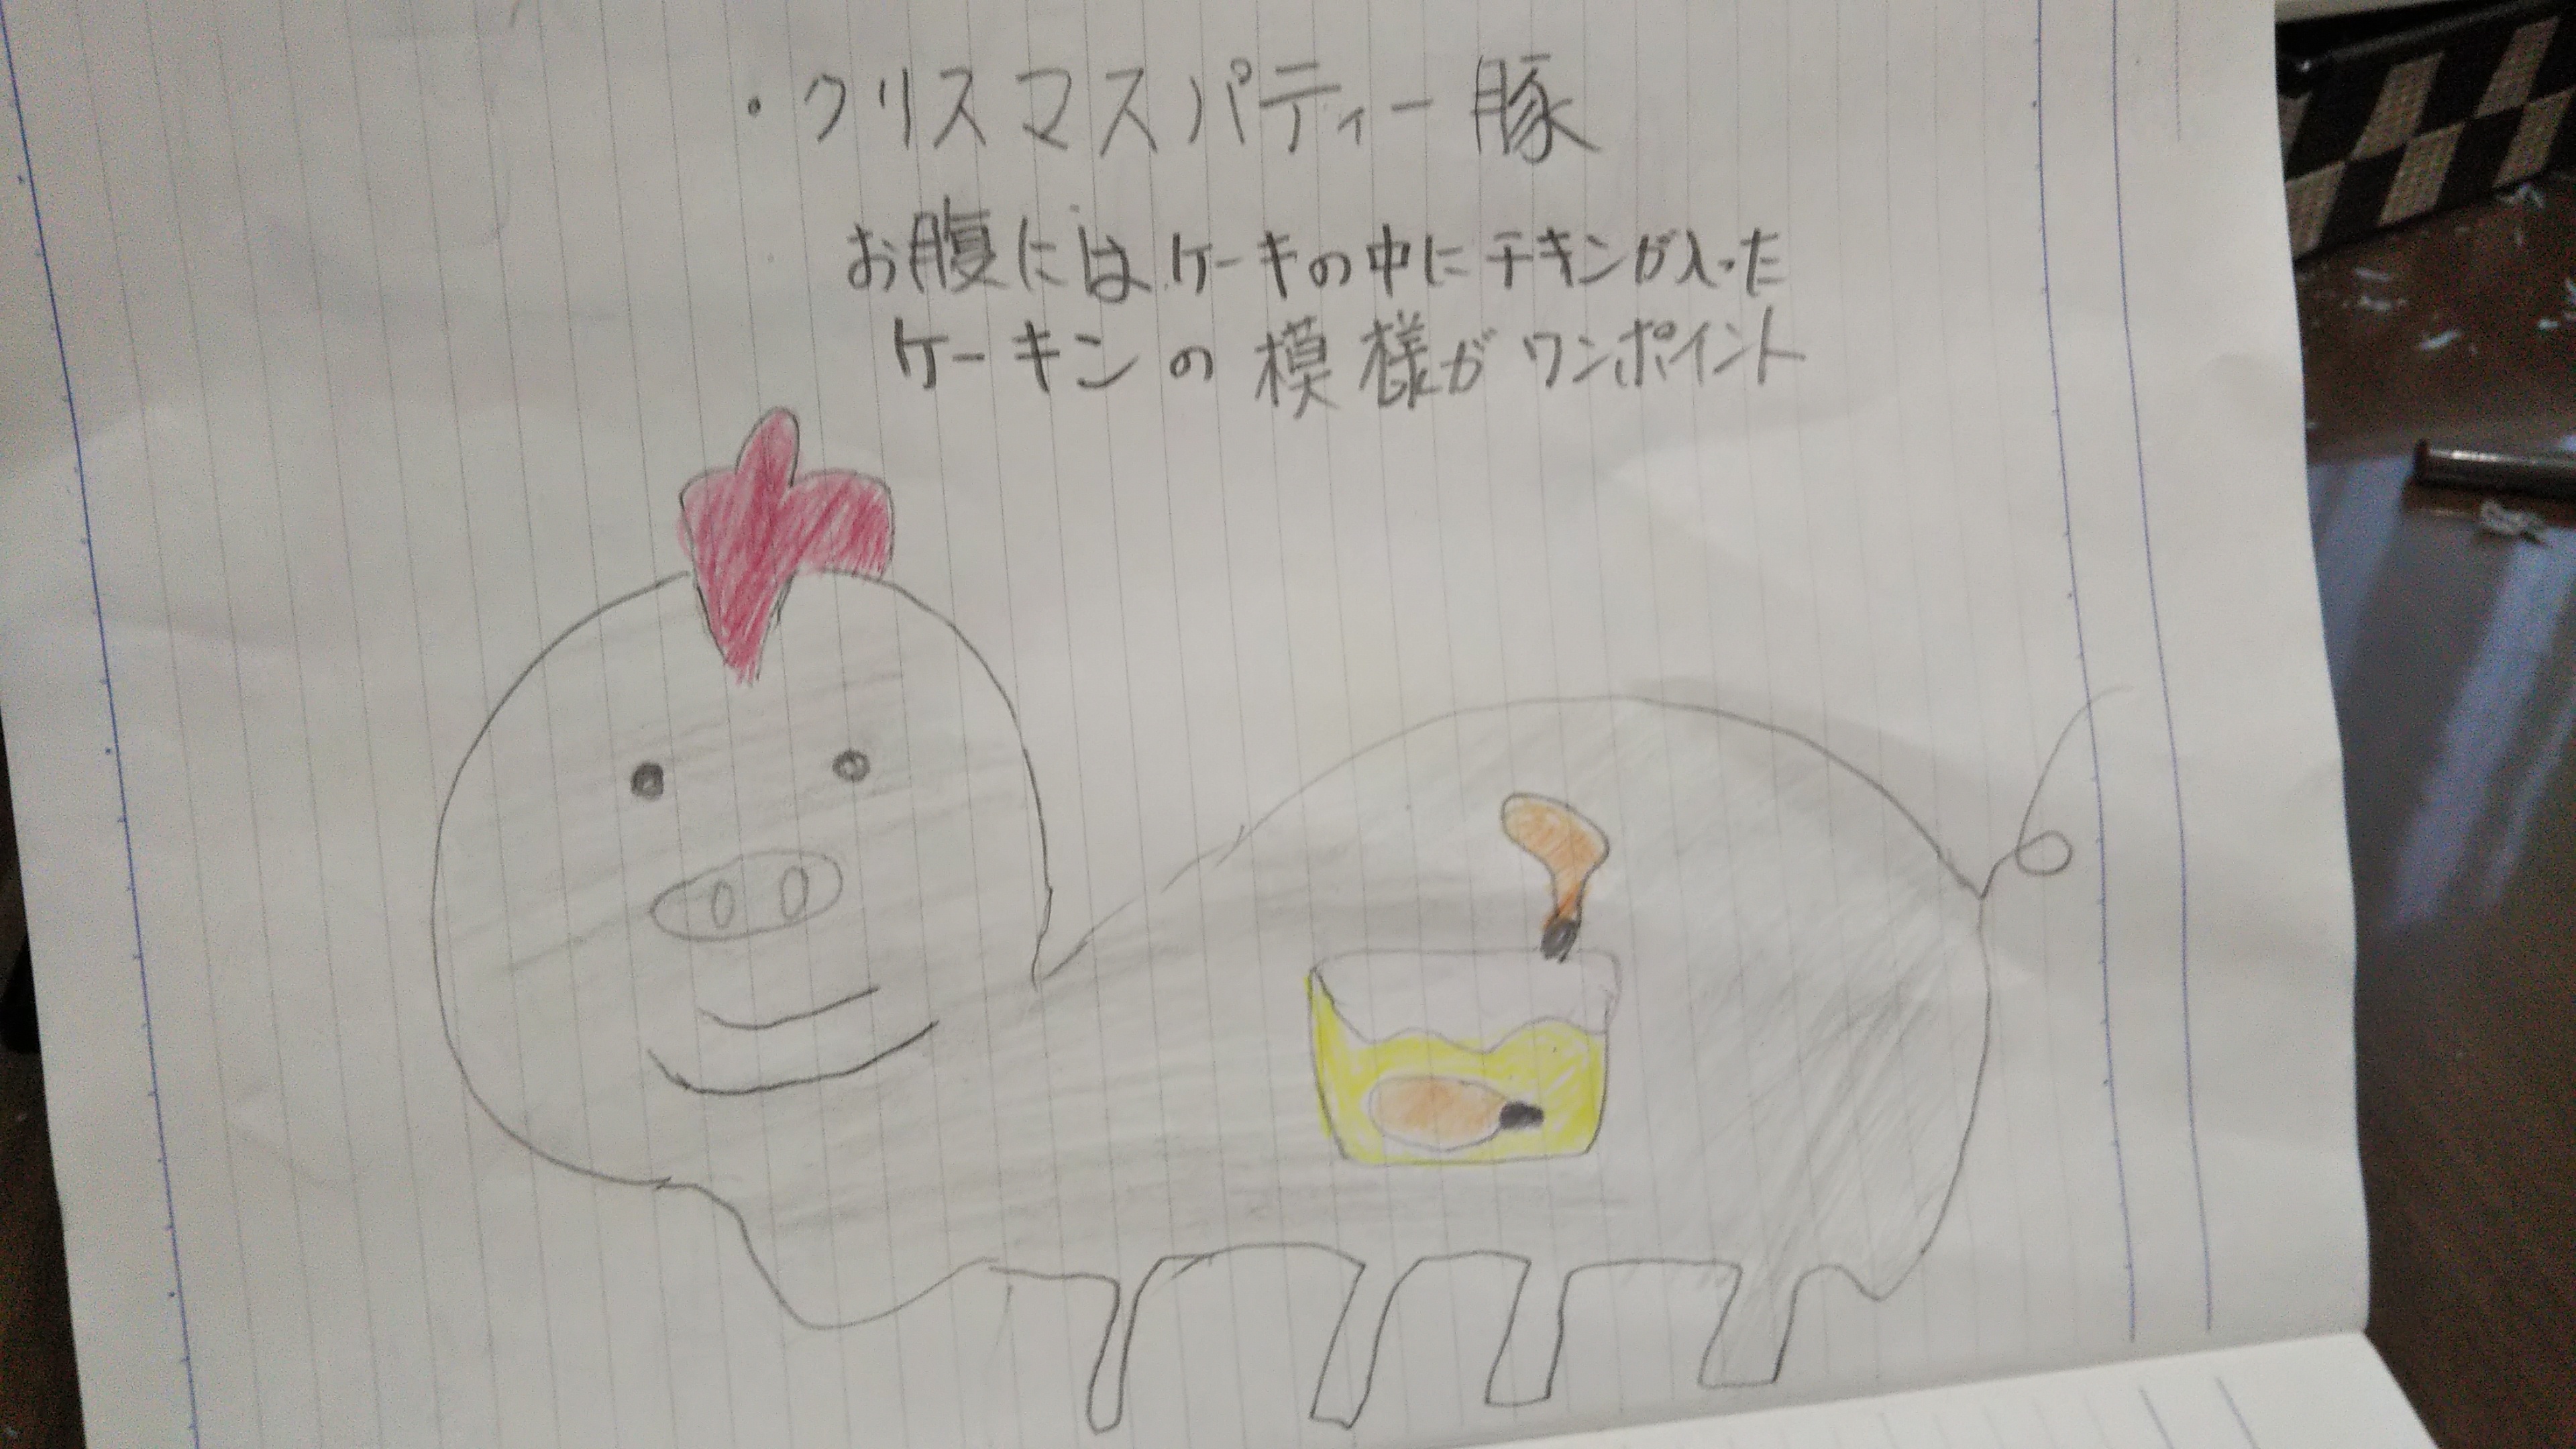 ・クリスマスパティー豚
お腹にはケーキの中にチキンが入った
ケーキンの模様がワンポイント